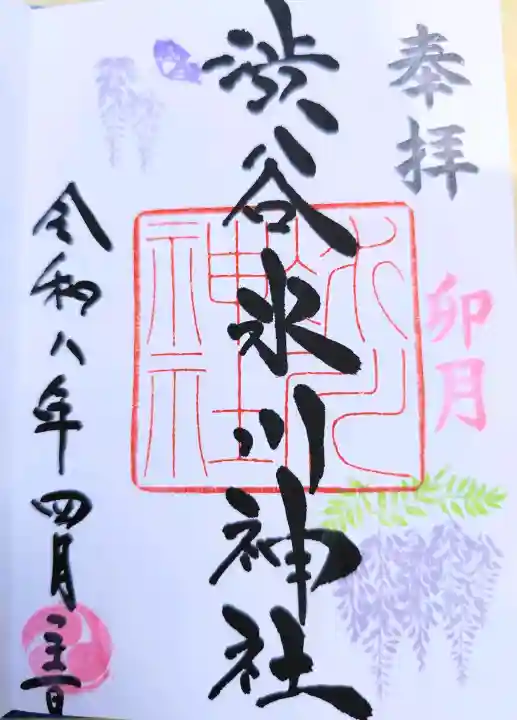 奉拝
卯月
渋谷氷川神社
氷川神社
令和八年四月